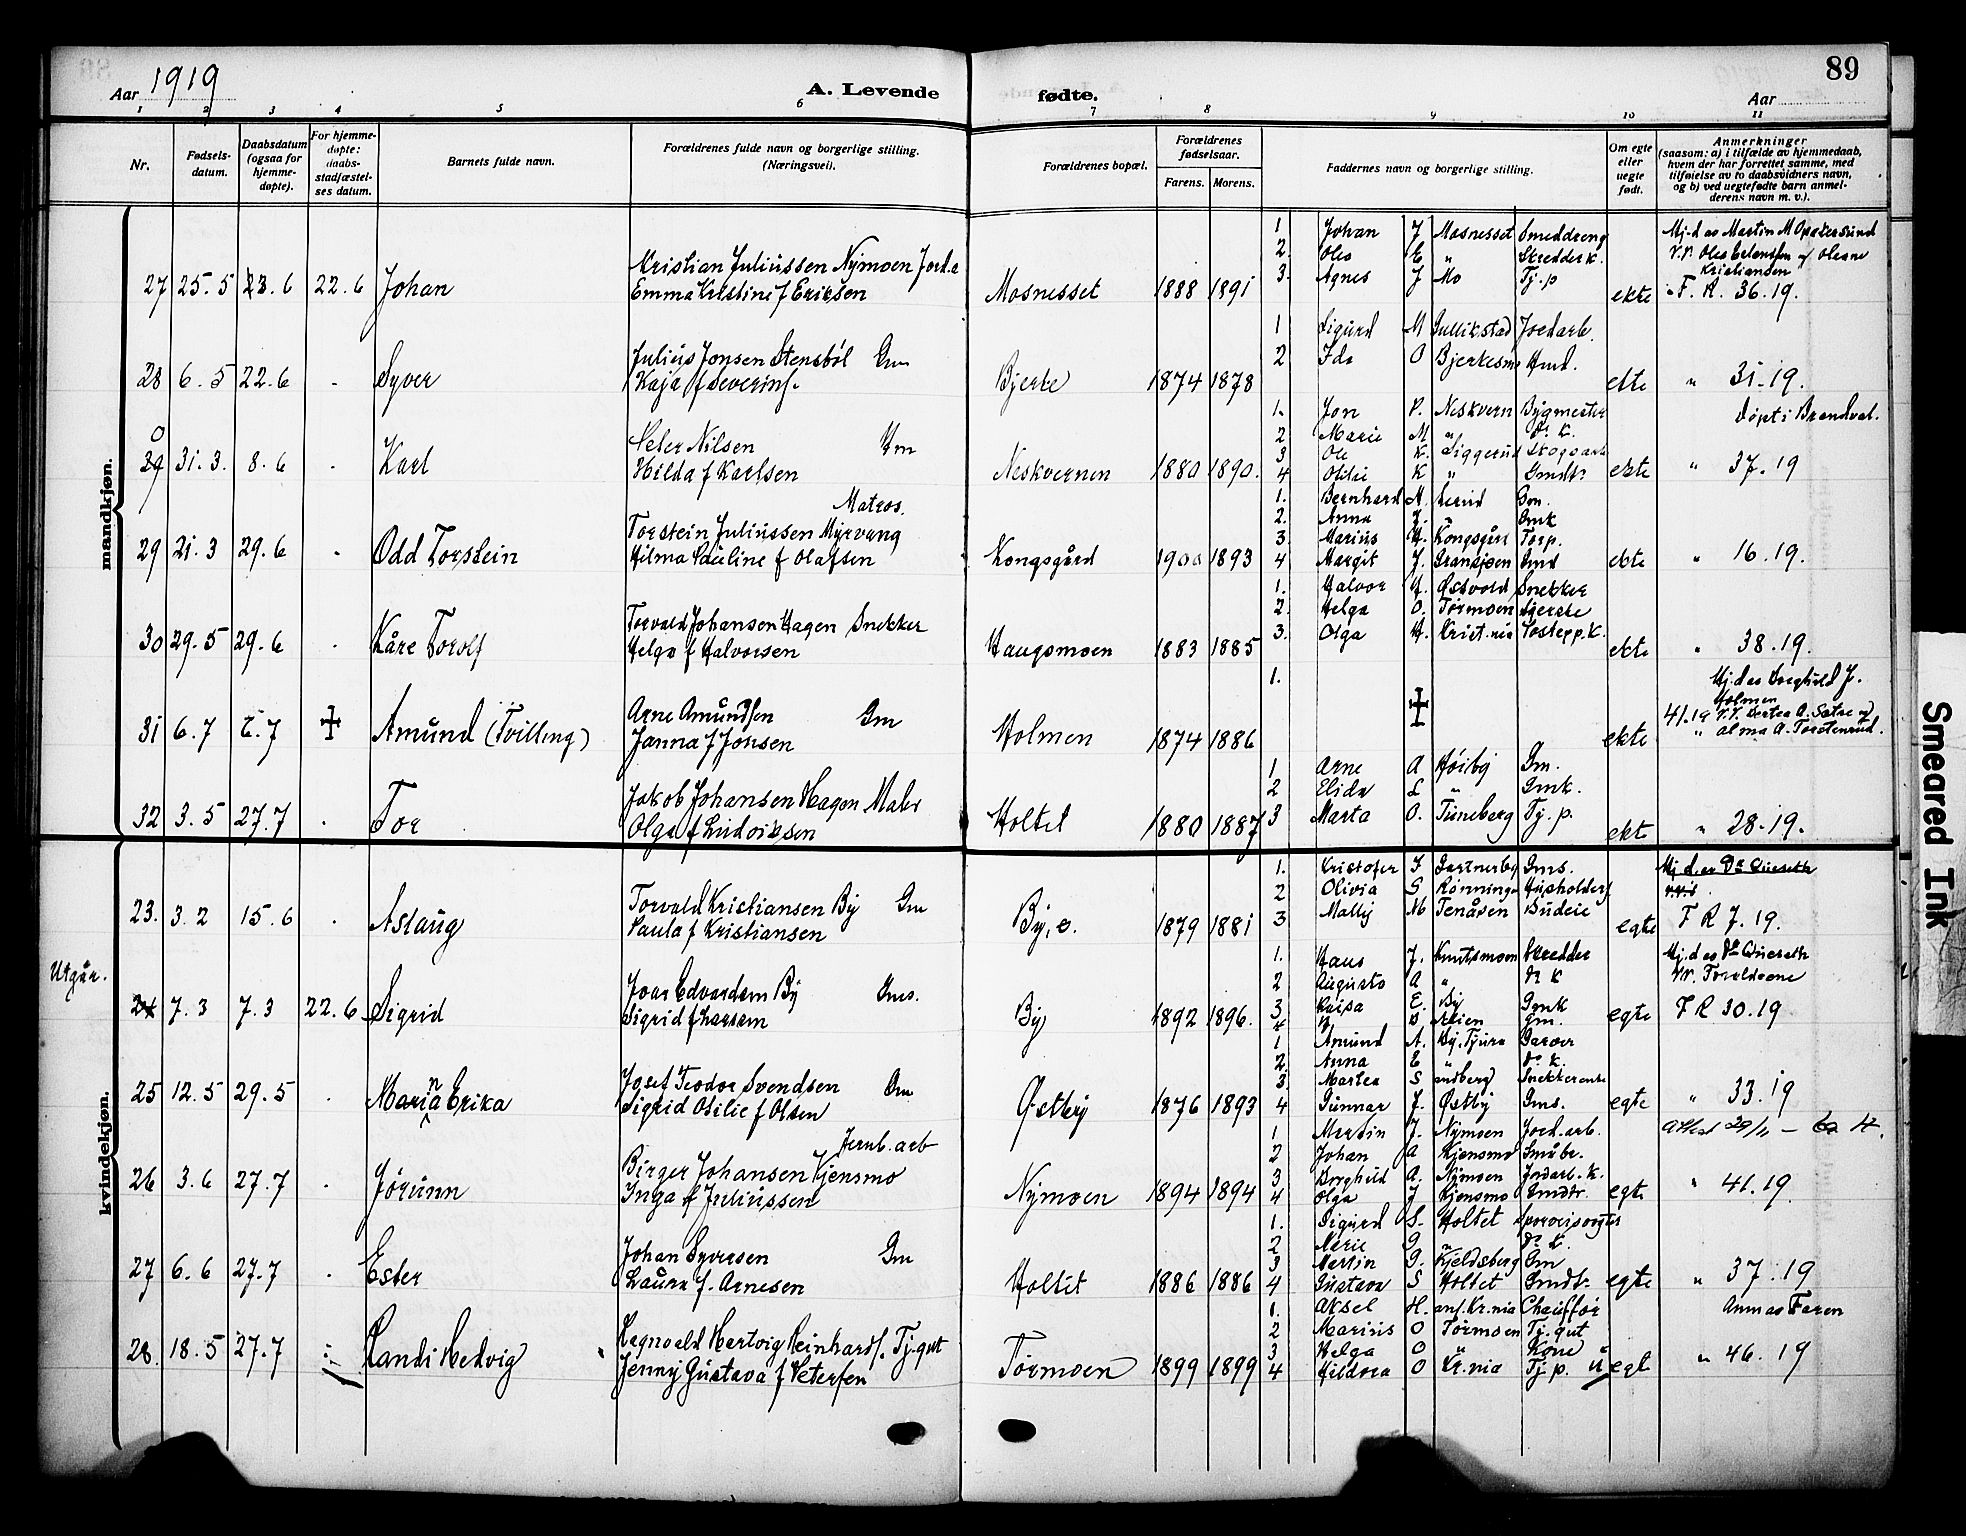 89
Aar 1919
A. Levende
fødte.
Aar
1 2 3 4 5 6 7 8 9 10 11
Nr.
Fødsels-
datum.
Daabsdatum
(ogsaa for
hjemme-
døpte).
For hjemme-
døpte:
daabs-
stadfæstel-
ses datum.
Barnets fulde navn.
Forældrenes fulde navn og borgerlige stilling.
(Næringsvei).
Forældrenes bopæl.
Forældrenes
fødselsaar.
Farens. Morens.
Faddernes navn og borgerlige stilling.
Om egte
eller
uegte
født.
Anmerkninger
(saasom: a) i tilfælde av hjemmedaab,
hvem der har forrettet samme, med
tilføielse av to daabsvidners navn,
og b) ved uegtefødte barn anmel-
derens navn m. v.).
mandkjøn.
27 25.5 23.6 22.6 Johan
Kristian Juliussen Nymoen Jord.a
Emma Kristine f Eriksen
Mosnesset 1888 1891
1. Johan J Mosnesset Smeddreng
2. Oleo E " Skredderk.
3. Agnes J Mo Tj.p
ekte
Kristiansen
F. R. 36.19.
28 6.5 22.6 - Syver
Julius Jonsen Stensbøl Gm
Kaja f Severins.
Bjerke 1874 1878
1 Sigurd M Gullikstad Jordarb.
2 Ida O Bjerkesmo Hmd.
ekte
" 31.19.
31.3. 8.6 - Karl
Peter Nilsen Gm
Hilda f Karlsen
Neskvernen 1880 1890.
1. Jon P. Neskvern Bygmester
2 Marie M " D. K.
3 Ole K. Siggerud Skogsarb
4 Olilie K " Gmdt.
ekte
Døpt i Brandval.
" 37.19
29 21.3 29.6 - Odd Torstein
Matros.
Torstein Juliussen Myrvang
Hilma Pauline f Olafsen
Kongsgård 1900 1893
1. Bernhard H. Lerud Gm.
2. Anna J. " Gmk
3. Marius H. Kongsgård Torp.
4 Margit J. Gransjøen Gmd
ekte
" 16.19.
30 29.5 29.6 - Kåre Torolf
Torvald Johansen Hagen Snekker
Helga f Halvorsen
Haugsmoen 1883 1885
1. Halvor H. Østvold Snekker
2. Helga O. Tørmoen Syerske
3. Olga H. Krist.nia Postepp.K.
ekte
" 38.19.
31 6.7 6.7 + Amund (Tvilling)
Arne Amundsen Gm
Janna f Jonsen
Holmen 1874 1886
1.
+
ekte
Hj.d av Borghild J.
Holmen
41.19 V.V. Bertea A. Sætre og
" Alma A. Torstenrud.
32 3.5 27.7 . Tor
Jakob Johansen Hagen Maler
Olga f Ludviksen
Holtet 1880 1887
1 Arne A Høiby Gm.
2 Elida L " Gmk.
3 Marta O. Tuneberg Tj.p.
ekte
" 28.19.
kvindekjøn.
23. 3.2 15.6 . Aslaug
Torvald Kristiansen By Gm
Paula f Kristiansen
By, ø. 1879 1881
1. Kristofer J Gartnerby Gms.
2 Olivia S Rønninge Husholders
3 Mally M Tenåsen Budeie
egte
F R 7.19.
Utgår.
24 7.3 7.3 22.6 Sigrid
Joar Edvardsen By Gms.
Sigrid f Larsen
By 1892 1896.
1. Hans J. Knutsmoen Skredder
2 Augusta A " D. K
3 Kaisa E. By Gmk
Gm.
egte
V.V. Forældrene
F R 30.19
25 12.5 29.5 . Marina Erika
Josef Teodor Svendsen Gm
Sigrid Otilie f Olsen
Østby 1876 1893
1 Amund A. By, Tjura Garver
2. Anna E " D. K.
3. Martea Sandberg Snekkerenke
4 Gunnar J. Østby Gms.
egte
" 33.19
26 3.6 27.7 . Jørunn
Jernb.arb
Birger Johansen Kjensmo
Inga f Juliussen
Nymoen 1894 1894
1 Martin J. Nymoen Jord.arb.
2 Johan A Kjensmo Småbr.
3 Borghild A. Nymoen Jordarb.K.
4 Olga J Kjensmo Gmdtr.
egte
Attest 29/11 -
" 41.19.
27 6.6 27.7 . Ester
Johan Syversen Gm
Laura f. Arnesen
Holtet 1886 1886
1. Sigurd S. Holtet
2 Marie G " D. K.
3 Martin G. Kjeldsberg Gm
4 Gustava S Holtet Gmdt.
egte
" 37.19
28. 18.5 27.7 Randi Hedvig
Ragnvald Hertvig Reinhards. Tj.gut
Jenny Gustava f Petersen
Tørmoen 1899 1899
1. Aksel H. ans.Kr.nia Chauffør
2 Marius O Tørmoen Tj.gut
3 Helga O " Kone
4 Hildora O Kr.nia Tj p.
uegt
Anm av Faren
" 46.19
Smeared Ink